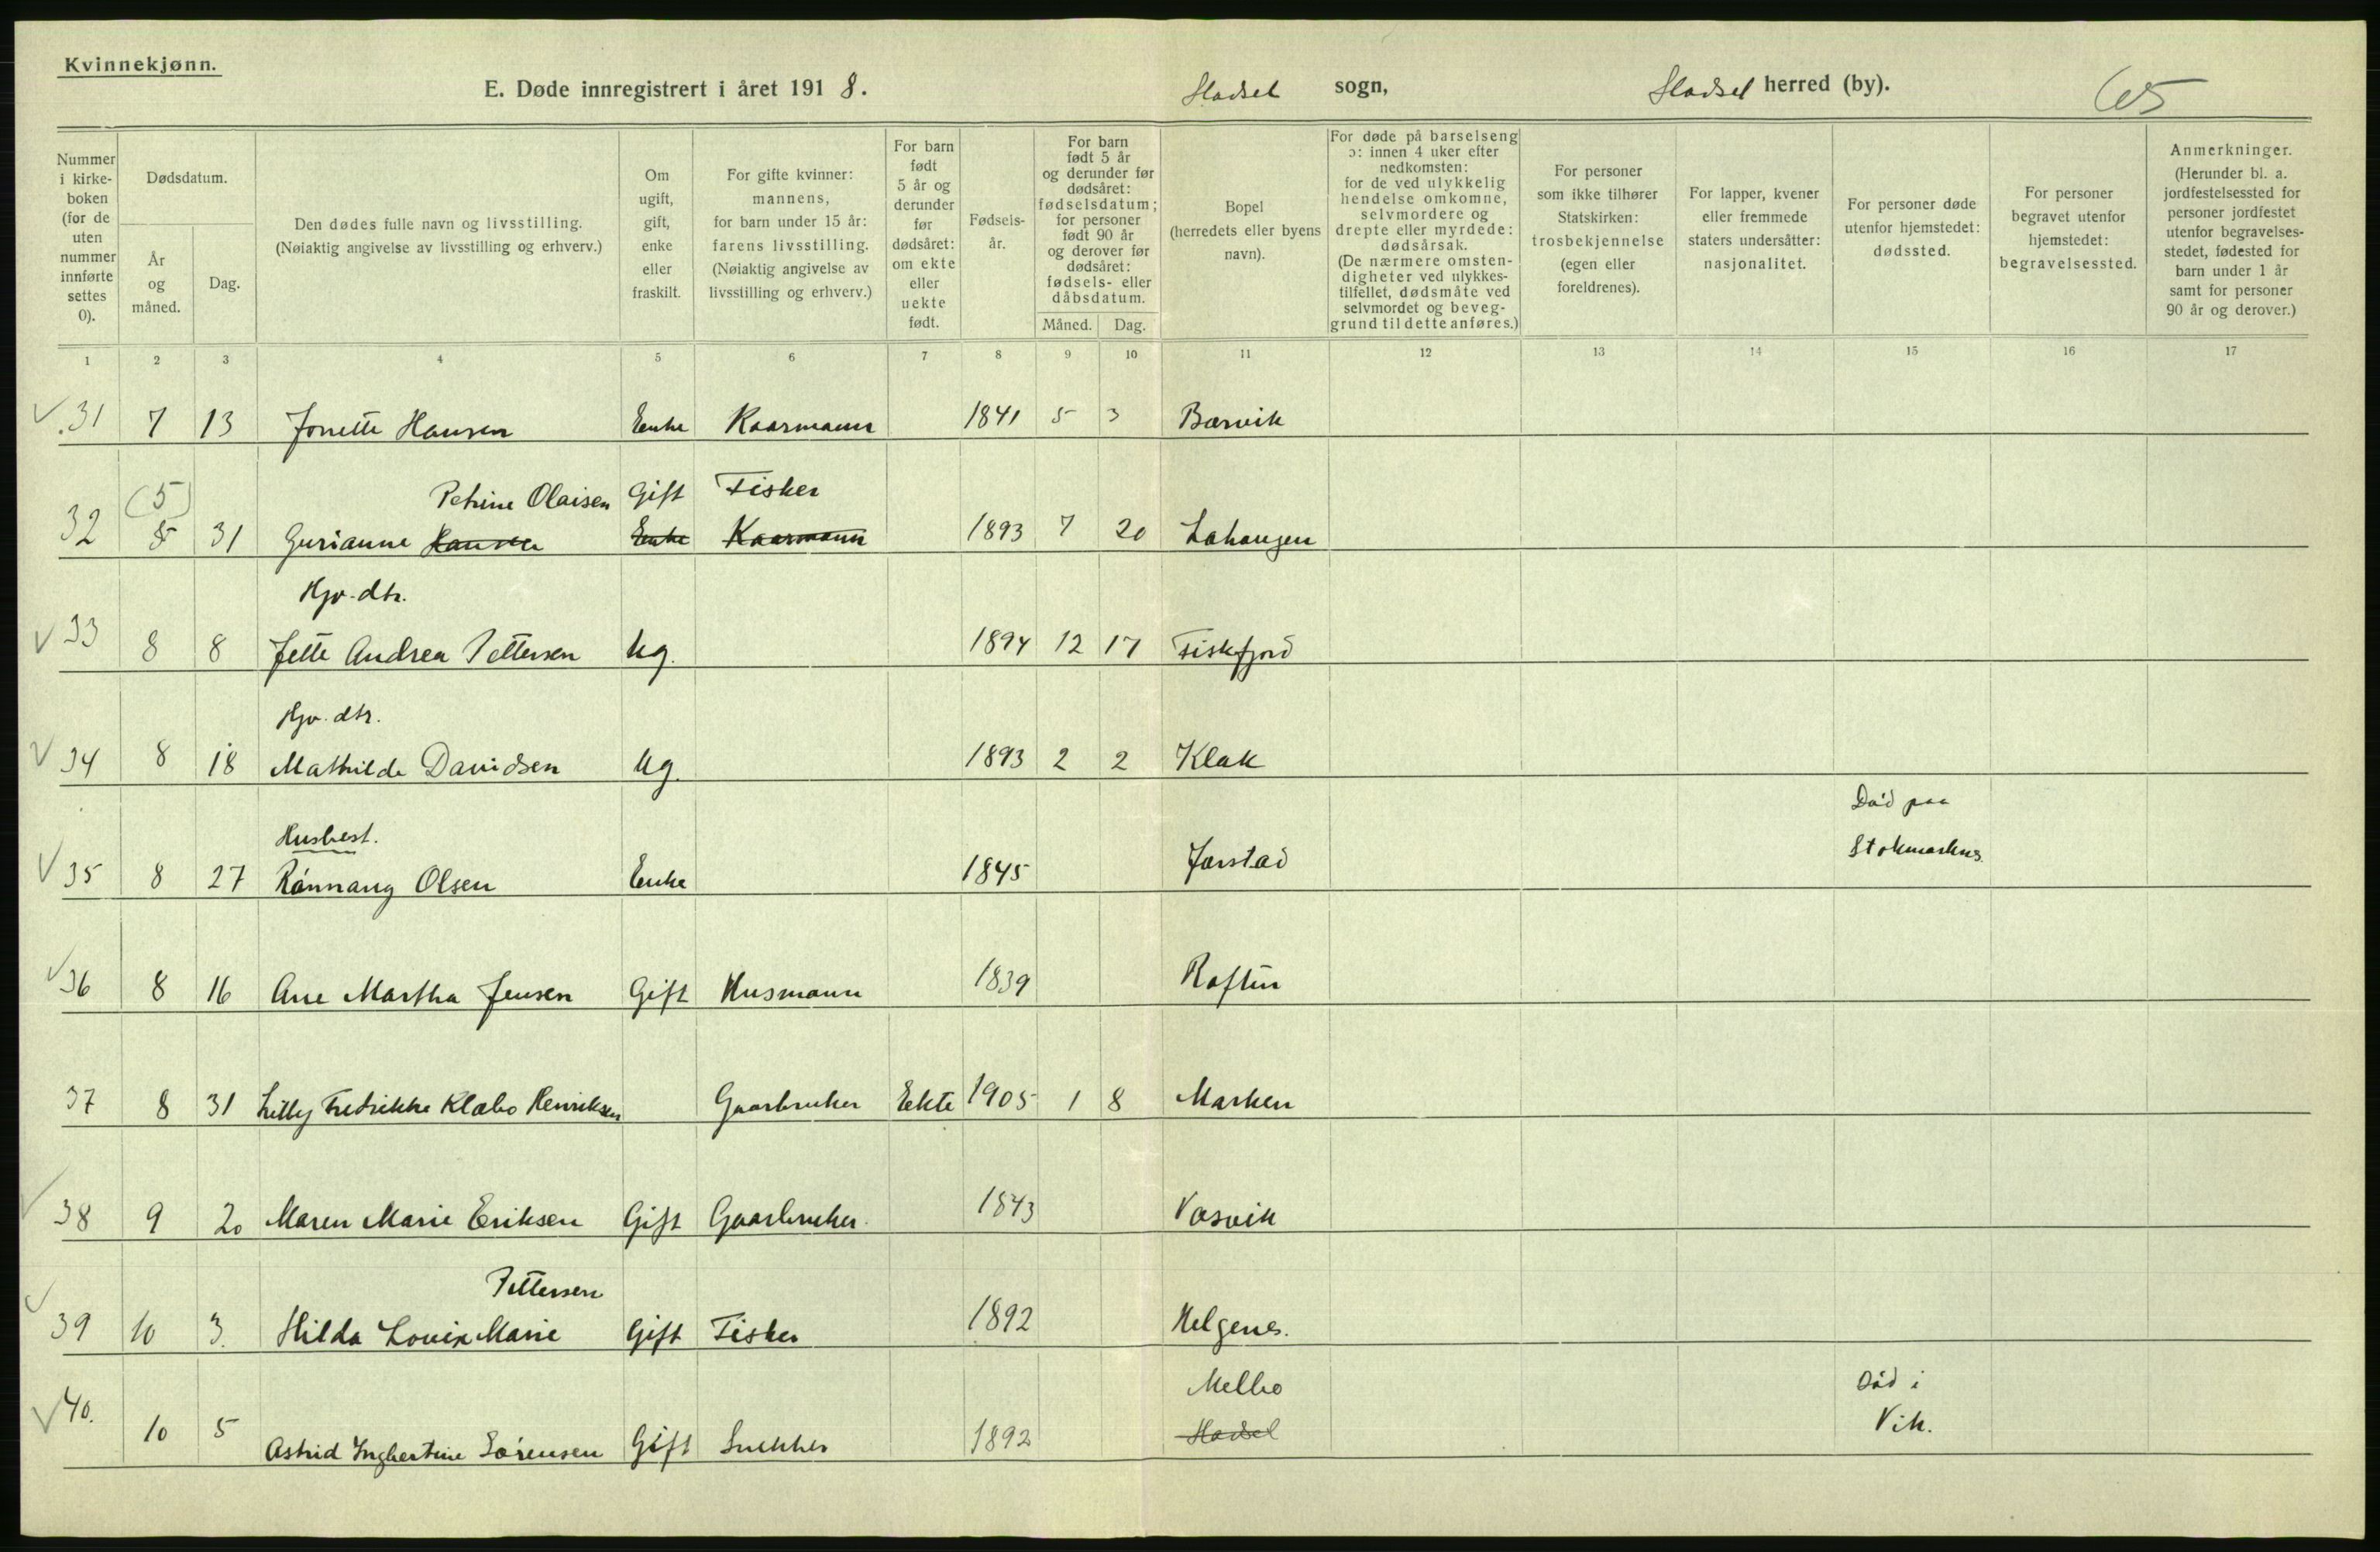 Kvinnekjønn.
E. Døde innregistrert i året 1918. Hadsel sogn, Hadsel herred (by). 65
Nummer i kirke-boken (for de uten nummer innførte settes 0).
Dødsdatum.
År og måned.
Dag.
Den dødes fulle navn og livsstilling. (Nøiaktig angivelse av livsstilling og erhverv.)
Om ugift, gift, enke eller fraskilt.
For gifte kvinner: mannens, for barn under 15 år: farens livsstilling. (Nøiaktig angivelse av livsstilling og erhverv.)
For barn født 5 år og derunder før dødsåret: om ekte eller uekte født.
Fødsels-år.
For barn født 5 år og derunder før dødsåret: fødselsdatum; for personer født 90 år og derover før dødsåret: fødsels- eller dåbsdatum.
Måned. Dag.
Bopel (herredets eller byens navn).
For døde på barselseng ɔ: innen 4 uker efter nedkomsten: for de ved ulykkelig hendelse omkomne, selvmordere og drepte eller myrdede: dødsårsak. (De nærmere omsten-digheter ved ulykkes-tilfellet, dødsmåte ved selvmordet og beveg-grund til dette anføres.)
For personer som ikke tilhører Statskirken: trosbekjennelse (egen eller foreldrenes).
For lapper, kvener eller fremmede staters undersåtter: nasjonalitet.
For personer døde utenfor hjemstedet: dødssted.
For personer begravet utenfor hjemstedet: begravelsessted.
Anmerkninger. (Herunder bl. a. jordfestelsessted for personer jordfestet utenfor begravelses-stedet, fødested for barn under 1 år samt for personer 90 år og derover.)
1 2 3 4 5 6 7 8 9 10 11 12 13 14 15 16 17
31 7 13 Jonette Hansen Enke Kaarmann 1841 5 3 Børvik
(5) Petrine Olaisen Gift Fisker
32 8 31 Gurianne Hansen Enke Kaarmann 1893 7 20
Hjv. dtr.
33 8 8 Jette Andrea Pettersen Ug. 1894 12 17 Fiskfjord
Hjv. dtr.
34 8 18 Mathilde Davidsen Ug. 1893 2 2 Klak
Død paa
Husbest. Stokmarknes
35 8 27 Rønnaug Olsen Enke 1845 Jørstad
36 8 16 Ane Martha Jensen Gift Husmann 1839
37 8 31 Lilly Fredrikke Klæbo Henriksen Gaarbruker Ekte 1905 1 8 Marken
38 9 20 Maren Marie Eriksen Gift Gaarbruker. 1843 Vasvik
Pettersen
39 10 3. Hilda Marie Gift Fisker 1892 Helgenes.
Melbo Død i
40. 10 5 Astrid Ingbertine Sørensen Gift Snekker 1892 Hadsel Vik.